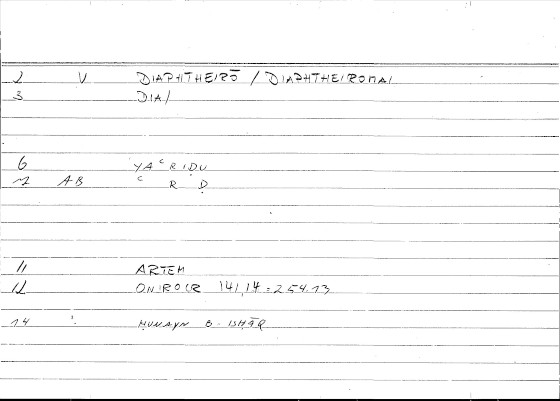 2 V DIAPHTHEIRŌ / DIAPHTHEIROMAI
3 DIA/
6 YAʿRIḌU
7 AB ʿ R Ḍ
11 ARTEM
12 ONIROCR 141,14 = 254,13
14 ḤUNAYN B. ISḤĀQ